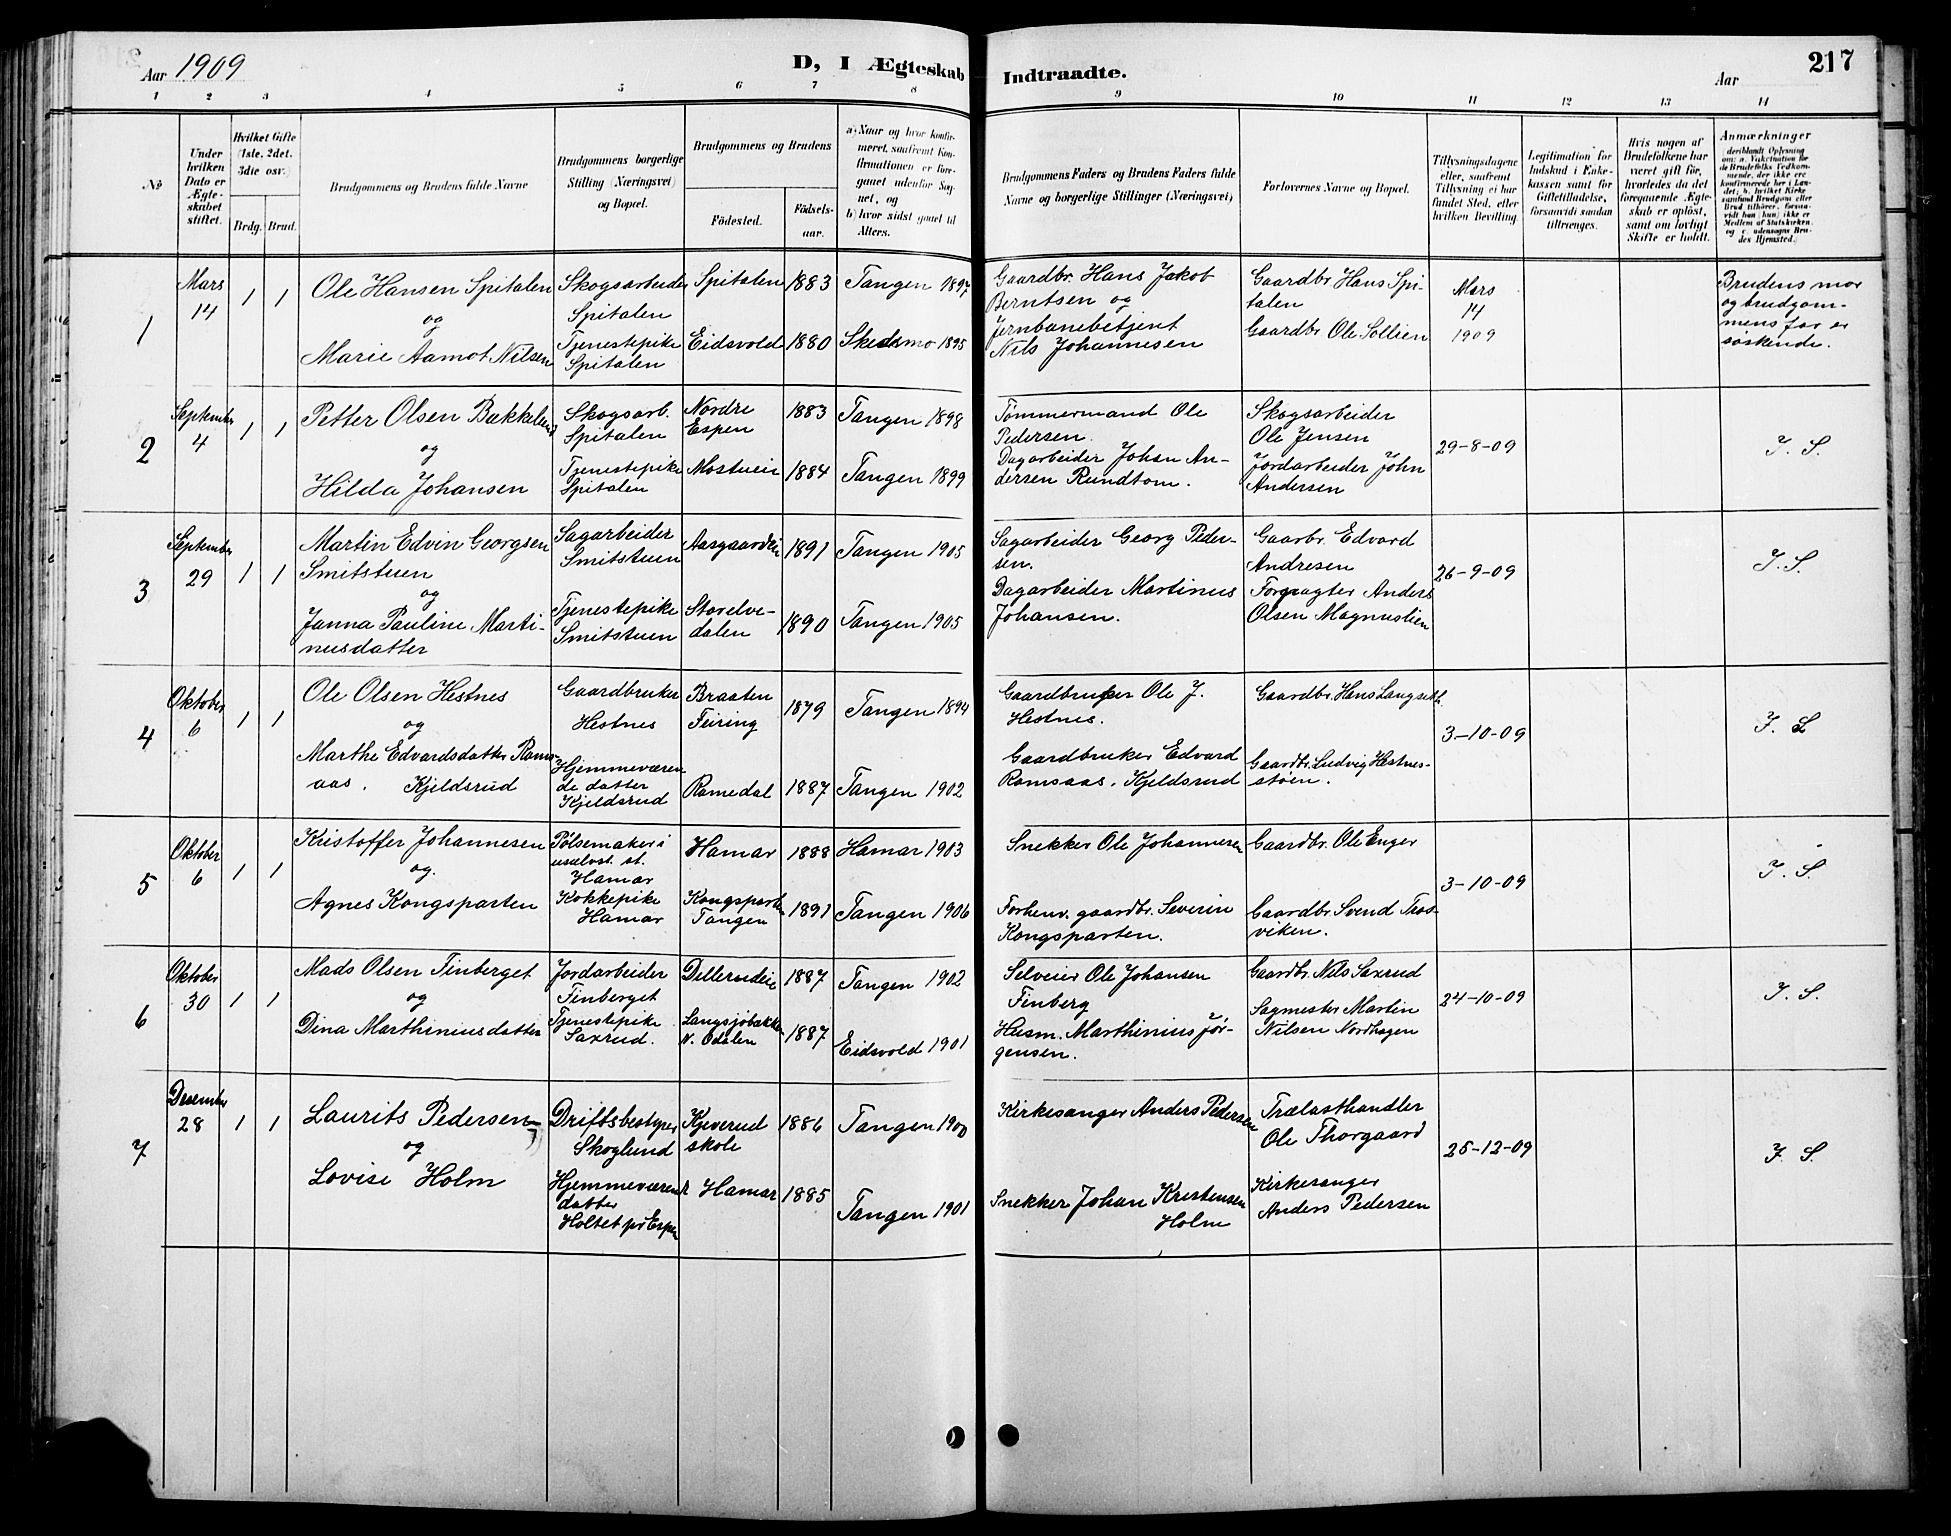 Aar 1909
D, I Ægteskab Indtraadte.
Aar
217
1 2 3 4 5 6 7 8 9 10 11 12 13 14
No
Under hvilken Dato er Ægteskabet stiftet.
Hvilket Gifte (1ste, 2det, 3die osv.)
Brdg. Brud.
Brudgommens og Brudens fulde Navne
Brudgommens borgerlige Stilling (Næringsvei) og Bopæl.
Brudgommens og Brudens
Fødested.
Fødselsaar.
a) Naar og hvor konfirmeret, saafremt Konfirmationen er foregaaet udenfor Sognet, og
b) hvor sidst gaaet til Alters.
Brudgommens Faders og Brudens Faders fulde
Navne og borgerlige Stillinger (Næringsvei)
Forlovernes Navne og Bopæl.
Tillysningsdagene eller, saafremt Tillysning ei har fundet Sted, efter hvilken Bevilling.
Legitimation for Indskud i Enkekassen samt for Giftetilladelse, forsaavidt saadan tiltrænges.
Hvis nogen af Brudefolkene har været gift før, hvorledes da det foregaaende Ægteskab er opløst, samt om lovligt Skifte er holdt.
Anmærkninger
1
Mars
14
1 1
Ole Hansen Spitalen
og
Marie Aamot Nilsen
Skogsarbeider
Spitalen
Tjenestepike
Spitalen
Spitalen
Eidsvold
1883
1880
Tangen 1897
Skedsmo 1895
Gaardbr. Hans Jakob
Berntsen og
Jernbanebetjent
Nils Johannesen
Gaardbr Hans Spi-
talen
Gaardbr Ole Sollien
Mars
14
1909
Brudens mor
og brudgom-
mens far er
søskende.
2
September
4
1 1
Petter Olsen Bækkelund
og
Hilda Johansen
Skogsarb.
Spitalen
Tjenestepike
Spitalen
Nordre
Espen
Mostueie
1883
1884
Tangen 1898
Tangen 1899
Tømmermand Ole
Pedersen.
Dagarbeider Johan An-
dersen Rundtom.
Skogsarbeider
Ole Jensen
Jordarbeider John
Andersen
29-8-09
I. S.
3
September
29
1 1
Martin Edvin Georgsen
Smitstuen
og
Janna Pauline Marti-
nusdatter
Sagarbeider
Smitstuen
Tjenestepike
Smitstuen
Storelve-
dalen
1891
1890
Tangen 1905
Tangen 1905
Sagarbeider Georg Peder-
sen.
Dagarbeider Martinus
Johansen.
Gaarbr. Edvard
Andresen
Forpagter Anders
Olsen Magnuslien
26-9-09
I. S.
4
Oktober
6
1 1
Ole Olsen Hestnes
og
Marthe Edvardsdatter Rams-
aas. Kjeldsrud
Gaardbruker
Hestnes
Hjemmeværen
de datter
Kjeldsrud
Braaten
Feiring
Romedal
1879
1887
Tangen 1894
Tangen 1902
Gaardbruker Ole J.
Hestnes.
Gaardbruker Edvard
Ramsaas. Kjeldsrud
Gaardbr. Hans Langseth.
Gaardbr. Ludvig Hestnes-
støen.
3-10-09
I. S
5
Oktober
6
1 1
Kristoffer Johannesen
og.
Agnes Kongsparten
Pølsemaker i
st.
Hamar
Kokkepike
Hamar
Hamar
Kongsparten
Tangen
1888
1891
Hamar 1903
Tangen 1906
Snekker Ole Johannesen
Forhenv. gaardbr. Severin
Kongsparten.
Gaardbr. Ole Enger
Gaardbr. Svend Tros-
viken.
3-10-09
I. S.
6
Oktober
30
1 1
Mads Olsen Finberget
og
Dina Marthiniusdatter
Jordarbeider
Finberget
Tjenestepike
Saxrud.
Dellerudeie
Langsjøbakken
N. Odalen
1887
1887
Tangen 1902
Eidsvold 1901
Selveier Ole Johansen
Finberg
Husm. Marthinius Jør-
gensen.
Gaardbr. Nils Saxrud
Sagmester Martin
Nilsen Nordhagen
24-10-09
I. S.
7
Desember
28
1 1
Laurits Pedersen
og
Lovise Holm
Driftsbestyrer
Skoglund
Hjemmeværend
datter
Holtet pr Espen
Kjeverud
skole
Hamar
1886
1885
Tangen 1900
Tangen 1901
Kirkesanger Anders Pedersen
Snekker Johan Kristensen
Holm
Trælasthandler
Ole Thorgaard
Kirkesanger
Anders Pedersen
25-12-09
I. S.